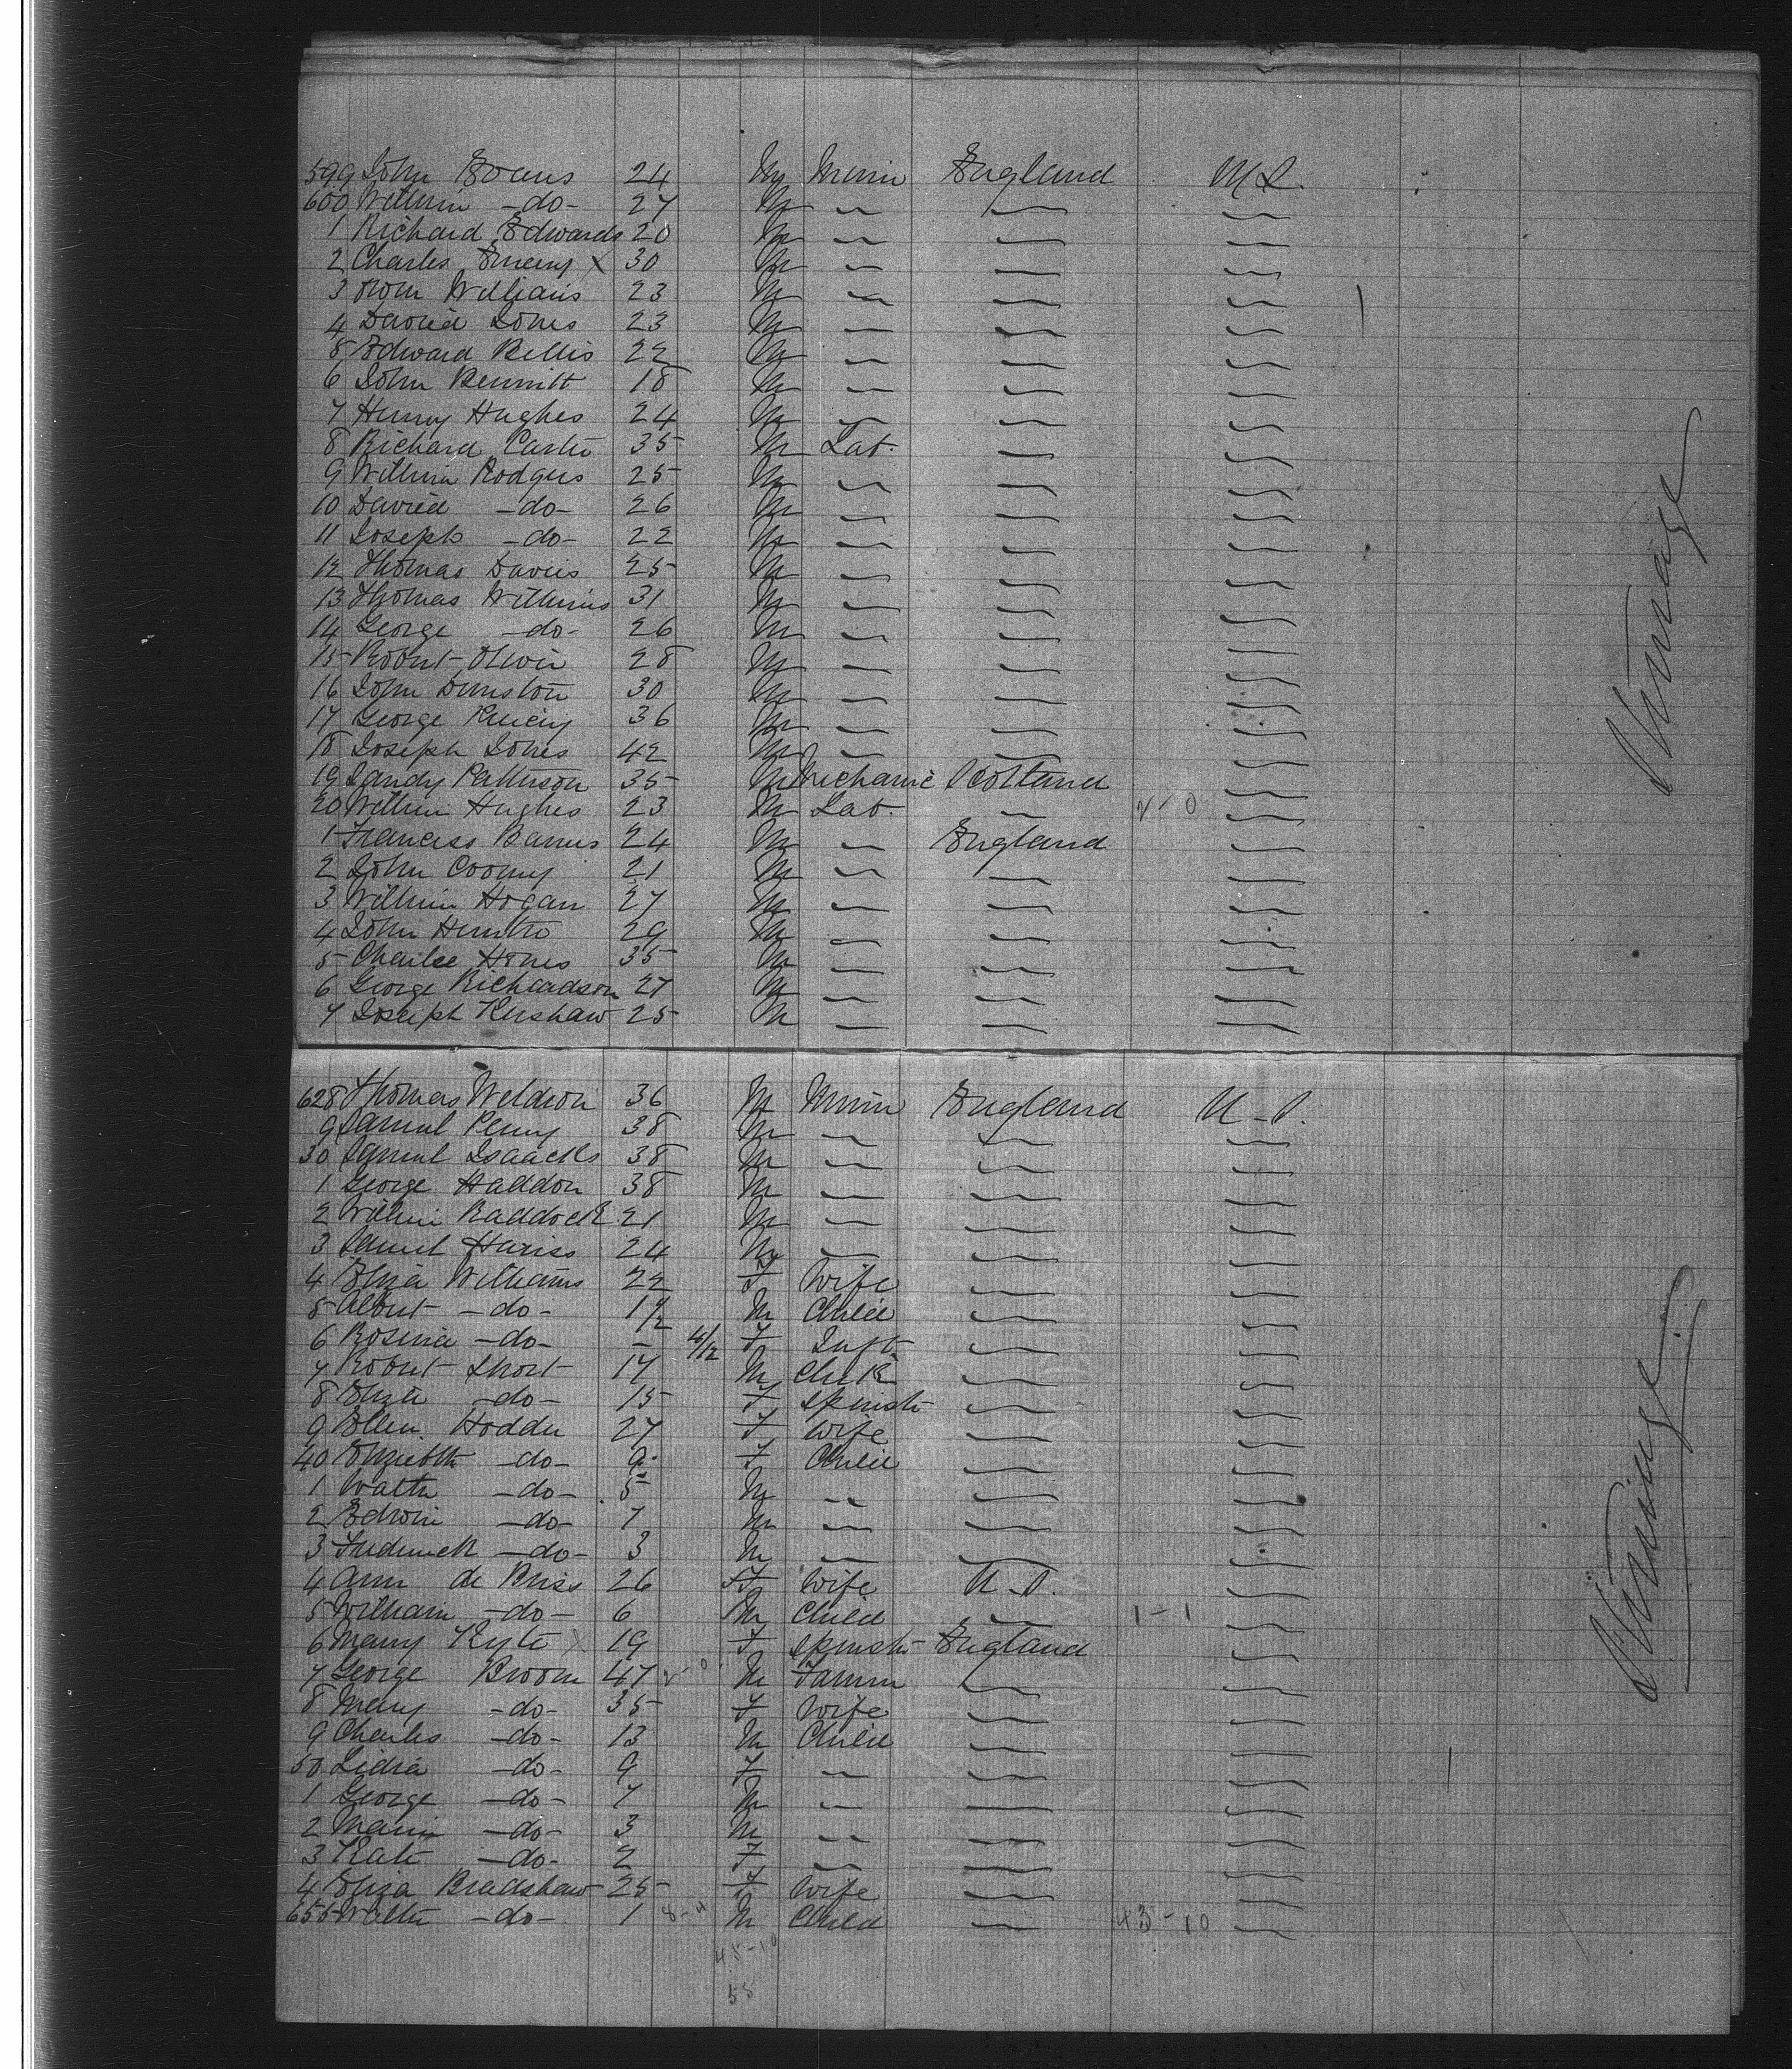 599 John Evans 24 M Miner England U S.
600 William -do- 27 M
1 Richard Edwards 20 M
2 Charles Emery X 30 M
3 Owen Williams 23 M
4 David Jones 23 M
5 Edward Bellis 22 M
6 John Bennitt 18 M
7 Henry Hughes 24 M
8 Richard Carter 35 M Lab.
9 William Rodgers 25 M
10 David -do- 26 M
11 Joseph -do- 22 M
12 Thomas Davies 25 M
13 Thomas Williams 31 M
14 George -do- 26 M
15 Robert Oliver 28 M
16 John Dunston 30 M
17 George 36 M
18 Joseph Jones 42 M
19 Sandy Patterson 35 M Mechanic Scotland
20 William Hughes 23 M Lab. 2-0
1 Franciss Barnes 24 M England
2 John Cooney 21 M
3 William Hogan 27 M
4 John Hunter 29 M
5 Charlee Hones 35 M
6 George Richardson 27 M
7 Joseph Kershaw 25 M
Steerage
628 Thomas Weldron 36 M Miner England U.S.
9 Samuel Penny 38 M
30 Samuel Isaacks 38 M
1 George Haddon 38 M
2 William Raddock 21 M
3 Samuel Hariss 24 M
4 Eliza Williams 22 F Wife
5 Albert -do- 1 1/2 M Child
6 Rosina -do- - F Inft
7 Robert Short 17 M Clerk
8 Eliza -do- 15 F Spinstr
9 Ellen Hodder 27 F Wife
40 Elizabeth -do- 9 F Child
1 Walter -do- 5 M
2 Edwin -do- 7 M
3 Frederick -do- 3 M
4 Ann de Briss 26 F Wife U.S.
5 William -do- 6 M Child 1-1
6 Mary Kyte X 19 F Spinstr England
7 George Broom 47 2-0 M Farmer
8 Mary -do- 35 F Wife
9 Charles -do- 13 M Child
50 Lidia -do- 9 F
1 George -do- 7 M
2 -do- 3 M
3 Kate -do- 2 F
4 Eliza Bradshaw 25 F Wife
655 Walter -do- 1 M Child 43-10
45-10
Steerage